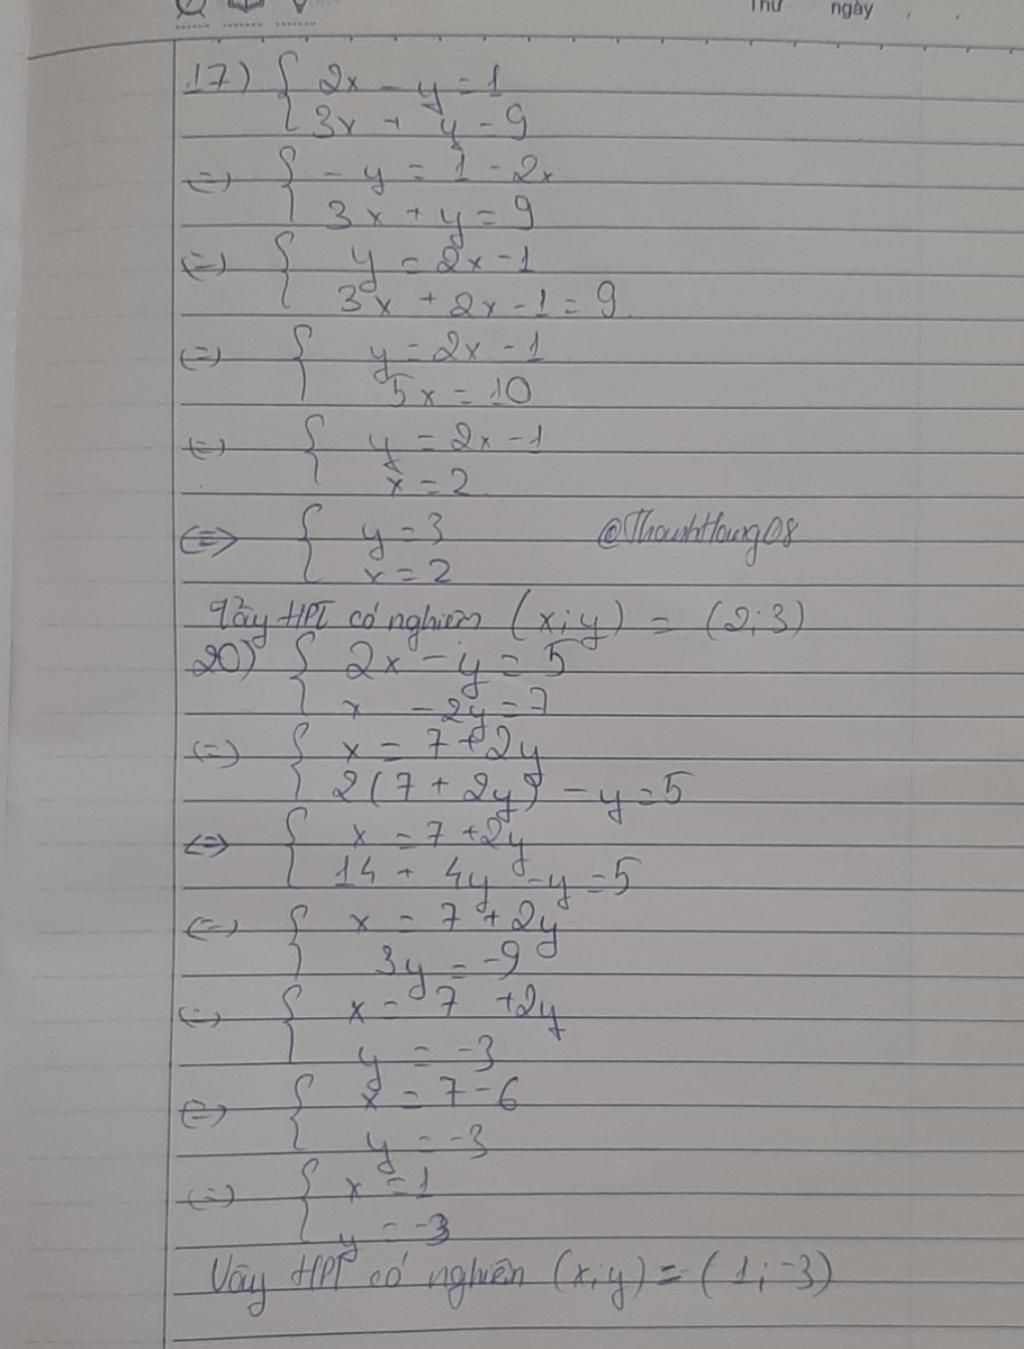 Thứ ngày
17) { 2x - y = 1
3x + y = 9
<=> { - y = 1 - 2x
3x + y = 9
<=> { y = 2x - 1
3x + 2x - 1 = 9
<=> { y = 2x - 1
5x = 10
<=> { y = 2x - 1
x = 2
<=> { y = 3 @ThanhHung08
x = 2
Vậy HPT có nghiệm (x;y) = (2;3)
20) { 2x - y = 5
x - 2y = 7
<=> { x = 7 + 2y
2(7 + 2y) - y = 5
<=> { x = 7 + 2y
14 + 4y - y = 5
<=> { x = 7 + 2y
3y = -9
<=> { x = 7 + 2y
y = -3
<=> { x = 7 - 6
y = -3
<=> { x = 1
y = -3
Vậy HPT có nghiệm (x;y) = (1;-3)